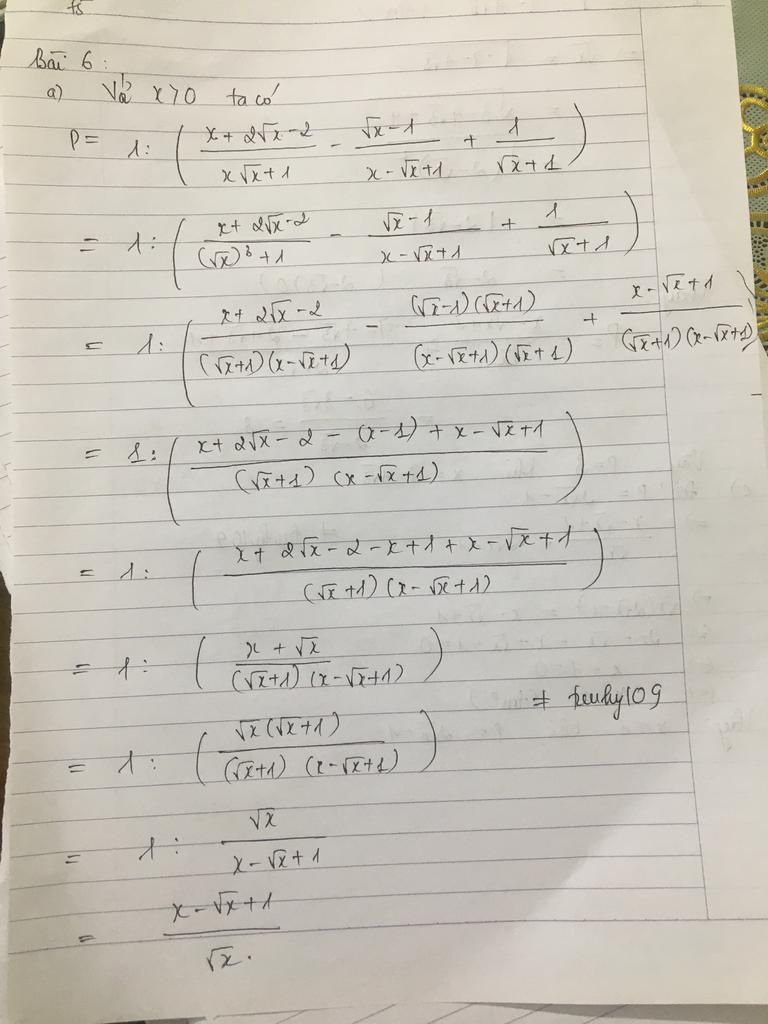 Bài 6:
a) Với x>0 ta có
P = 1: ( (x + 2√x - 2)/(x√x + 1) - (√x - 1)/(x - √x + 1) + 1/(√x + 1) )
= 1: ( (x + 2√x - 2)/((√x)³ + 1) - (√x - 1)/(x - √x + 1) + 1/(√x + 1) )
= 1: ( (x + 2√x - 2)/((√x+1)(x-√x+1)) - ((√x-1)(√x+1))/((x-√x+1)(√x+1)) + (x-√x+1)/((√x+1)(x-√x+1)) )
= 1: ( (x + 2√x - 2 - (x-1) + x - √x + 1)/((√x+1)(x-√x+1)) )
= 1: ( (x + 2√x - 2 - x + 1 + x - √x + 1)/((√x+1)(x-√x+1)) )
= 1: ( (x + √x)/((√x+1)(x-√x+1)) )
= 1: ( (√x(√x+1))/((√x+1)(x-√x+1)) )
= 1: √x/(x-√x+1)
= (x-√x+1)/√x.